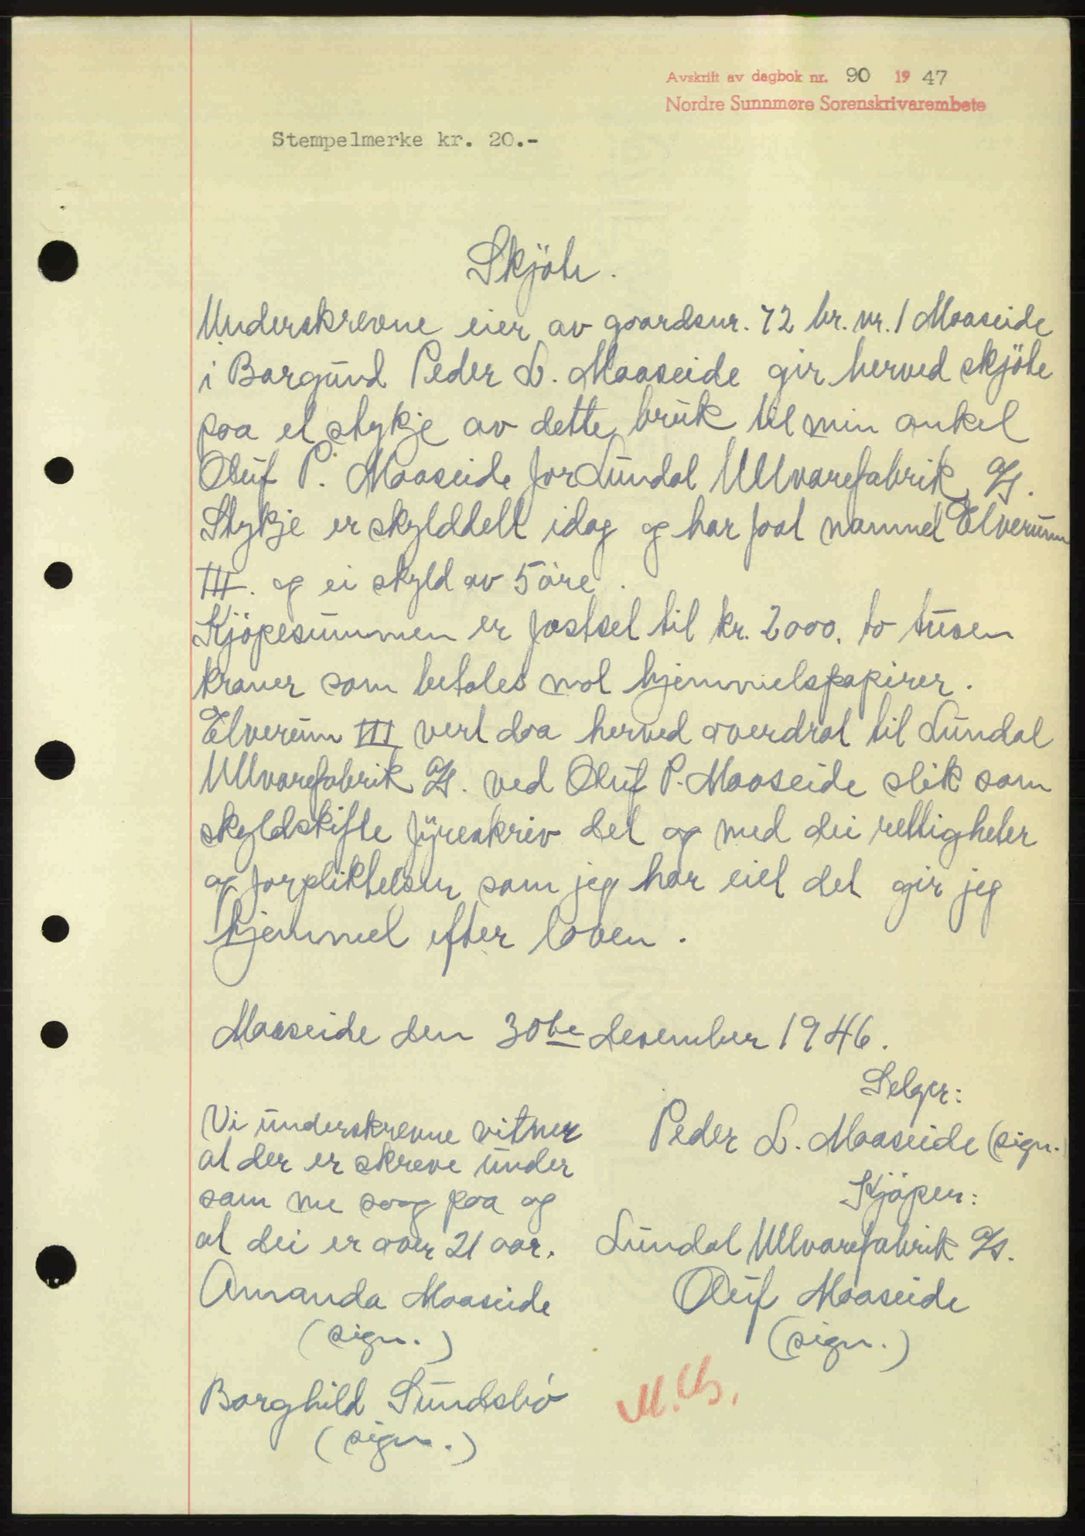 Avskrift av dagbok nr. 90 1947
Nordre Sunnmøre Sorenskrivarembete
Stempelmerke kr. 20.-
Skjöte.
Underskrevne eier av gaardsnr. 72 br. nr. 1 Maaseide
i Borgund Peder L. Maaseide gir herved skjöte
paa et stykje av dette bruk til min onkel
Oluf P. Maaseide for Lundal Ullvarefabrik A/S.
Stykje er skylddelt idag og har faat namnet Elverum
III. og ei skyld av 5 öre.
Kjöpesummen er fastset til kr. 2000. to tusen
kroner som betales mot hjemmelspapirer.
Elverum III vert daa herved overdrat til Lundal
Ullvarefabrik A/S. ved Oluf P. Maaseide slik som
skyldskifte fyreskriv det og med dei rettigheter
og forpliktelser som jeg har eiet det gir jeg
hjemmel efter loven.
Maaseide den 30te desember 1946.
Selger:
Vi underskrevne vitner
at der er skreve under
som me saag paa og
at dei er over 21 aar.
Amanda Maaseide
(sign.)
Borghild Sundsbö
(sign.)
Peder L. Maaseide (sign.
Kjöper:
Lundal Ullvarefabrik A/S.
Oluf Maaseide
(sign.)